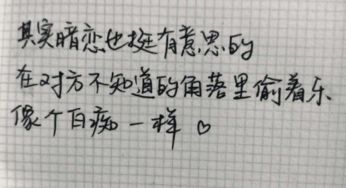 其实暗恋也挺有意思的
在对方不知道的角落里偷着乐
像个白痴一样